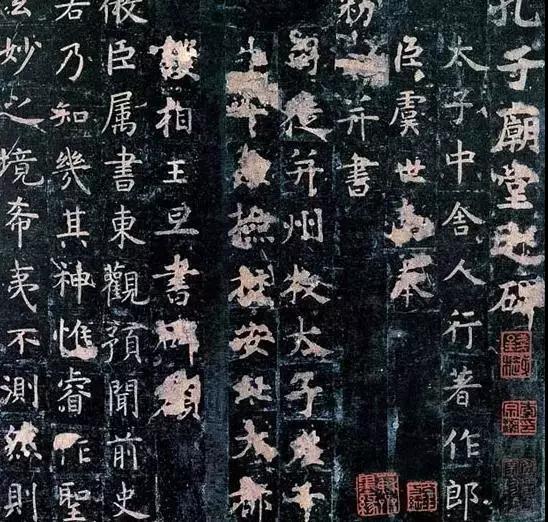 孔子廟堂之碑
太子中舍人行著作郎
臣虞世南奉
勑撰并書
司徒并州牧太子左千
牛率兼檢校安北大都
護相王旦書碑額
微臣属書東觀預聞前史
若乃知幾其神惟睿作聖
玄妙之境希夷不測然則